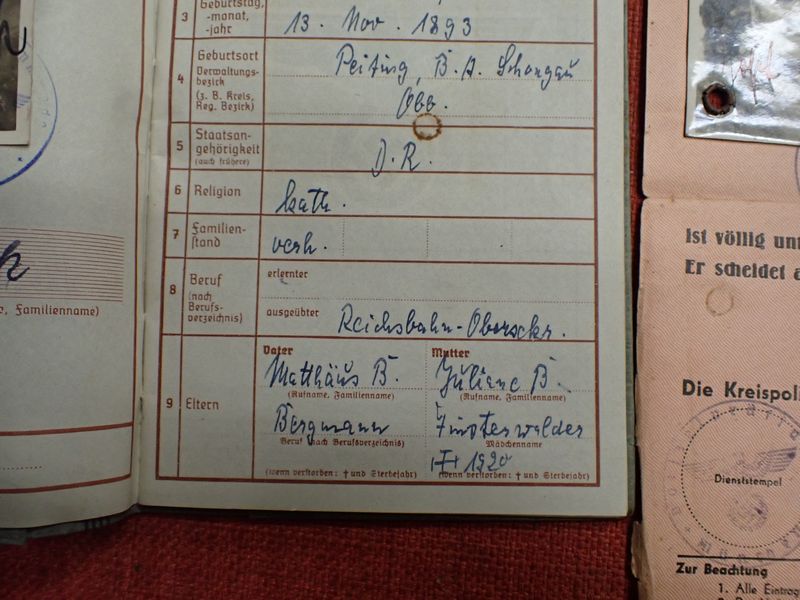 3 Geburtstag,
-monat,
-jahr
13. Nov. 1893
4 Geburtsort
Verwaltungs-
bezirk
(z. B. Kreis,
Reg. Bezirk)
Peiting, B. A. Schongau
Obb.
5 Staatsan-
gehörigkeit
(auch frühere)
D. R.
6 Religion
kath.
7 Familien-
stand
verh.
8 Beruf
(nach
Berufs-
verzeichnis)
erlernter
ausgeübter
Reichsbahn-Obersekr.
9 Eltern
Vater
Matthäus B.
(Rufname, Familienname)
Bergmann
Beruf (nach Berufsverzeichnis)
(wenn verstorben: † und Sterbejahr)
Mutter
Juliane B.
(Rufname, Familienname)
Finsterwalder
Mädchenname
1920
(wenn verstorben: † und Sterbejahr)
, Familienname)
Ist völlig
Er scheidet
Die Kreispol
Dienststempel
Zur Beachtung
1. Alle Eintrag